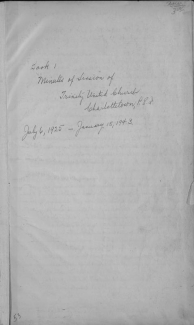 Book 1
Minutes of Session of
Trinity United Church
Charlottetown, P.E.I.
July 6, 1925 - January 10, 1942